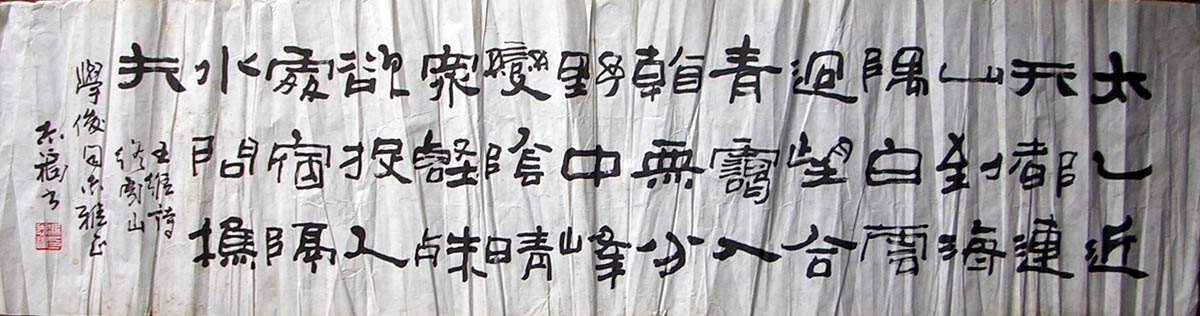 太乙近
天都連
山到海
隅白雲
迴望合
青靄入
看無分
野中峰
變陰晴
衆壑殊
欲投人
處宿隔
水問樵
夫
王維詩
終南山
學俊同志雅正